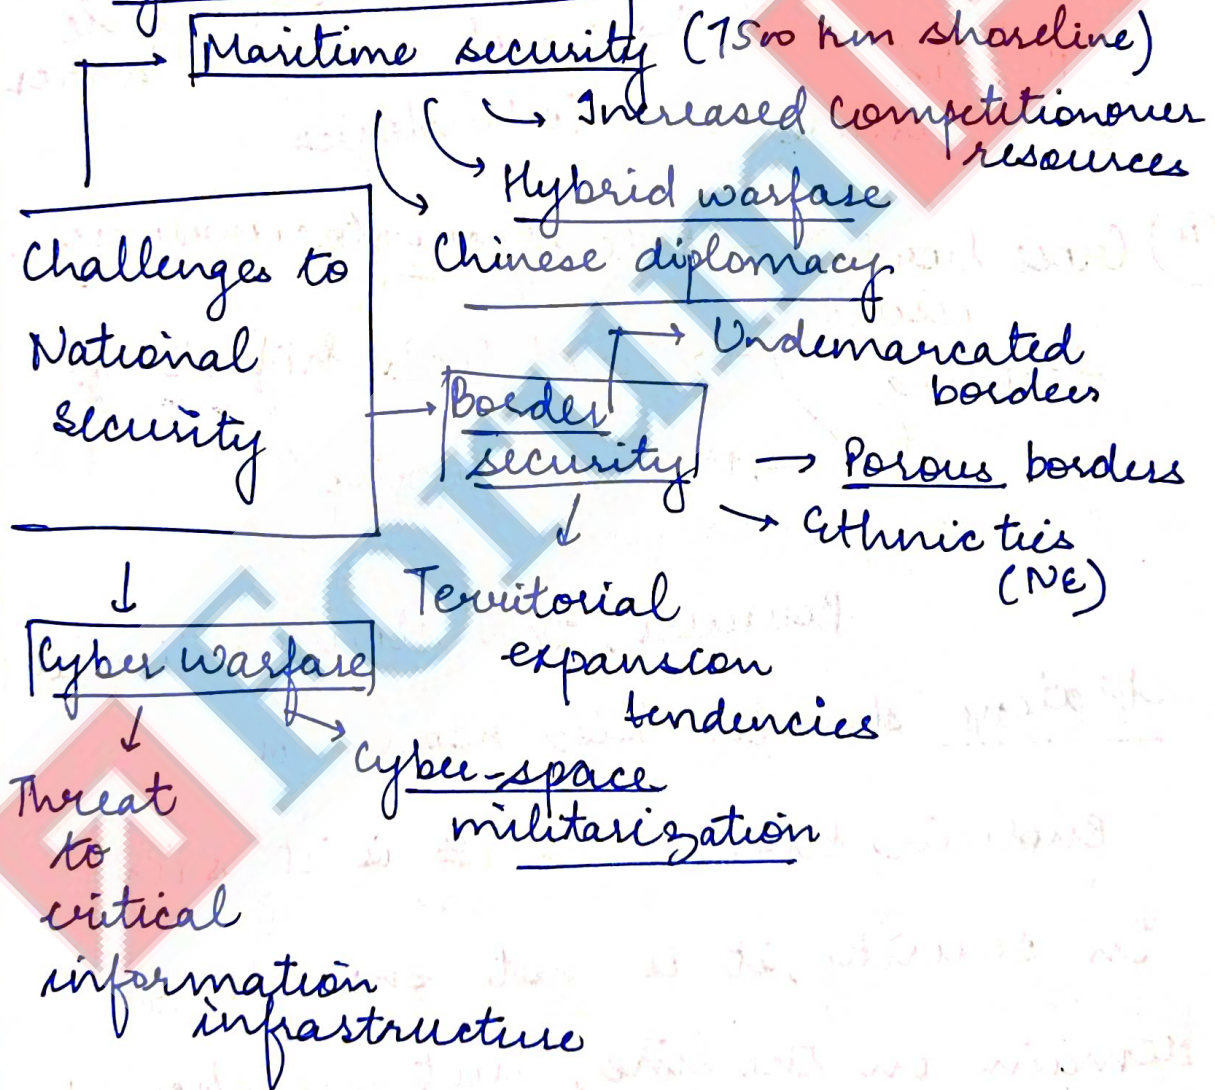 Maritime security (7500 km shoreline)
Increased competition over
resources
Hybrid warfare
Chinese diplomacy
Challenges to
National
Security
Border
security
Undemarcated
borders
Porous borders
Ethnic ties
(NE)
Territorial
expansion
tendencies
Cyber warfare
Cyber-space
militarization
Threat
to
critical
information
infrastructure
Forum